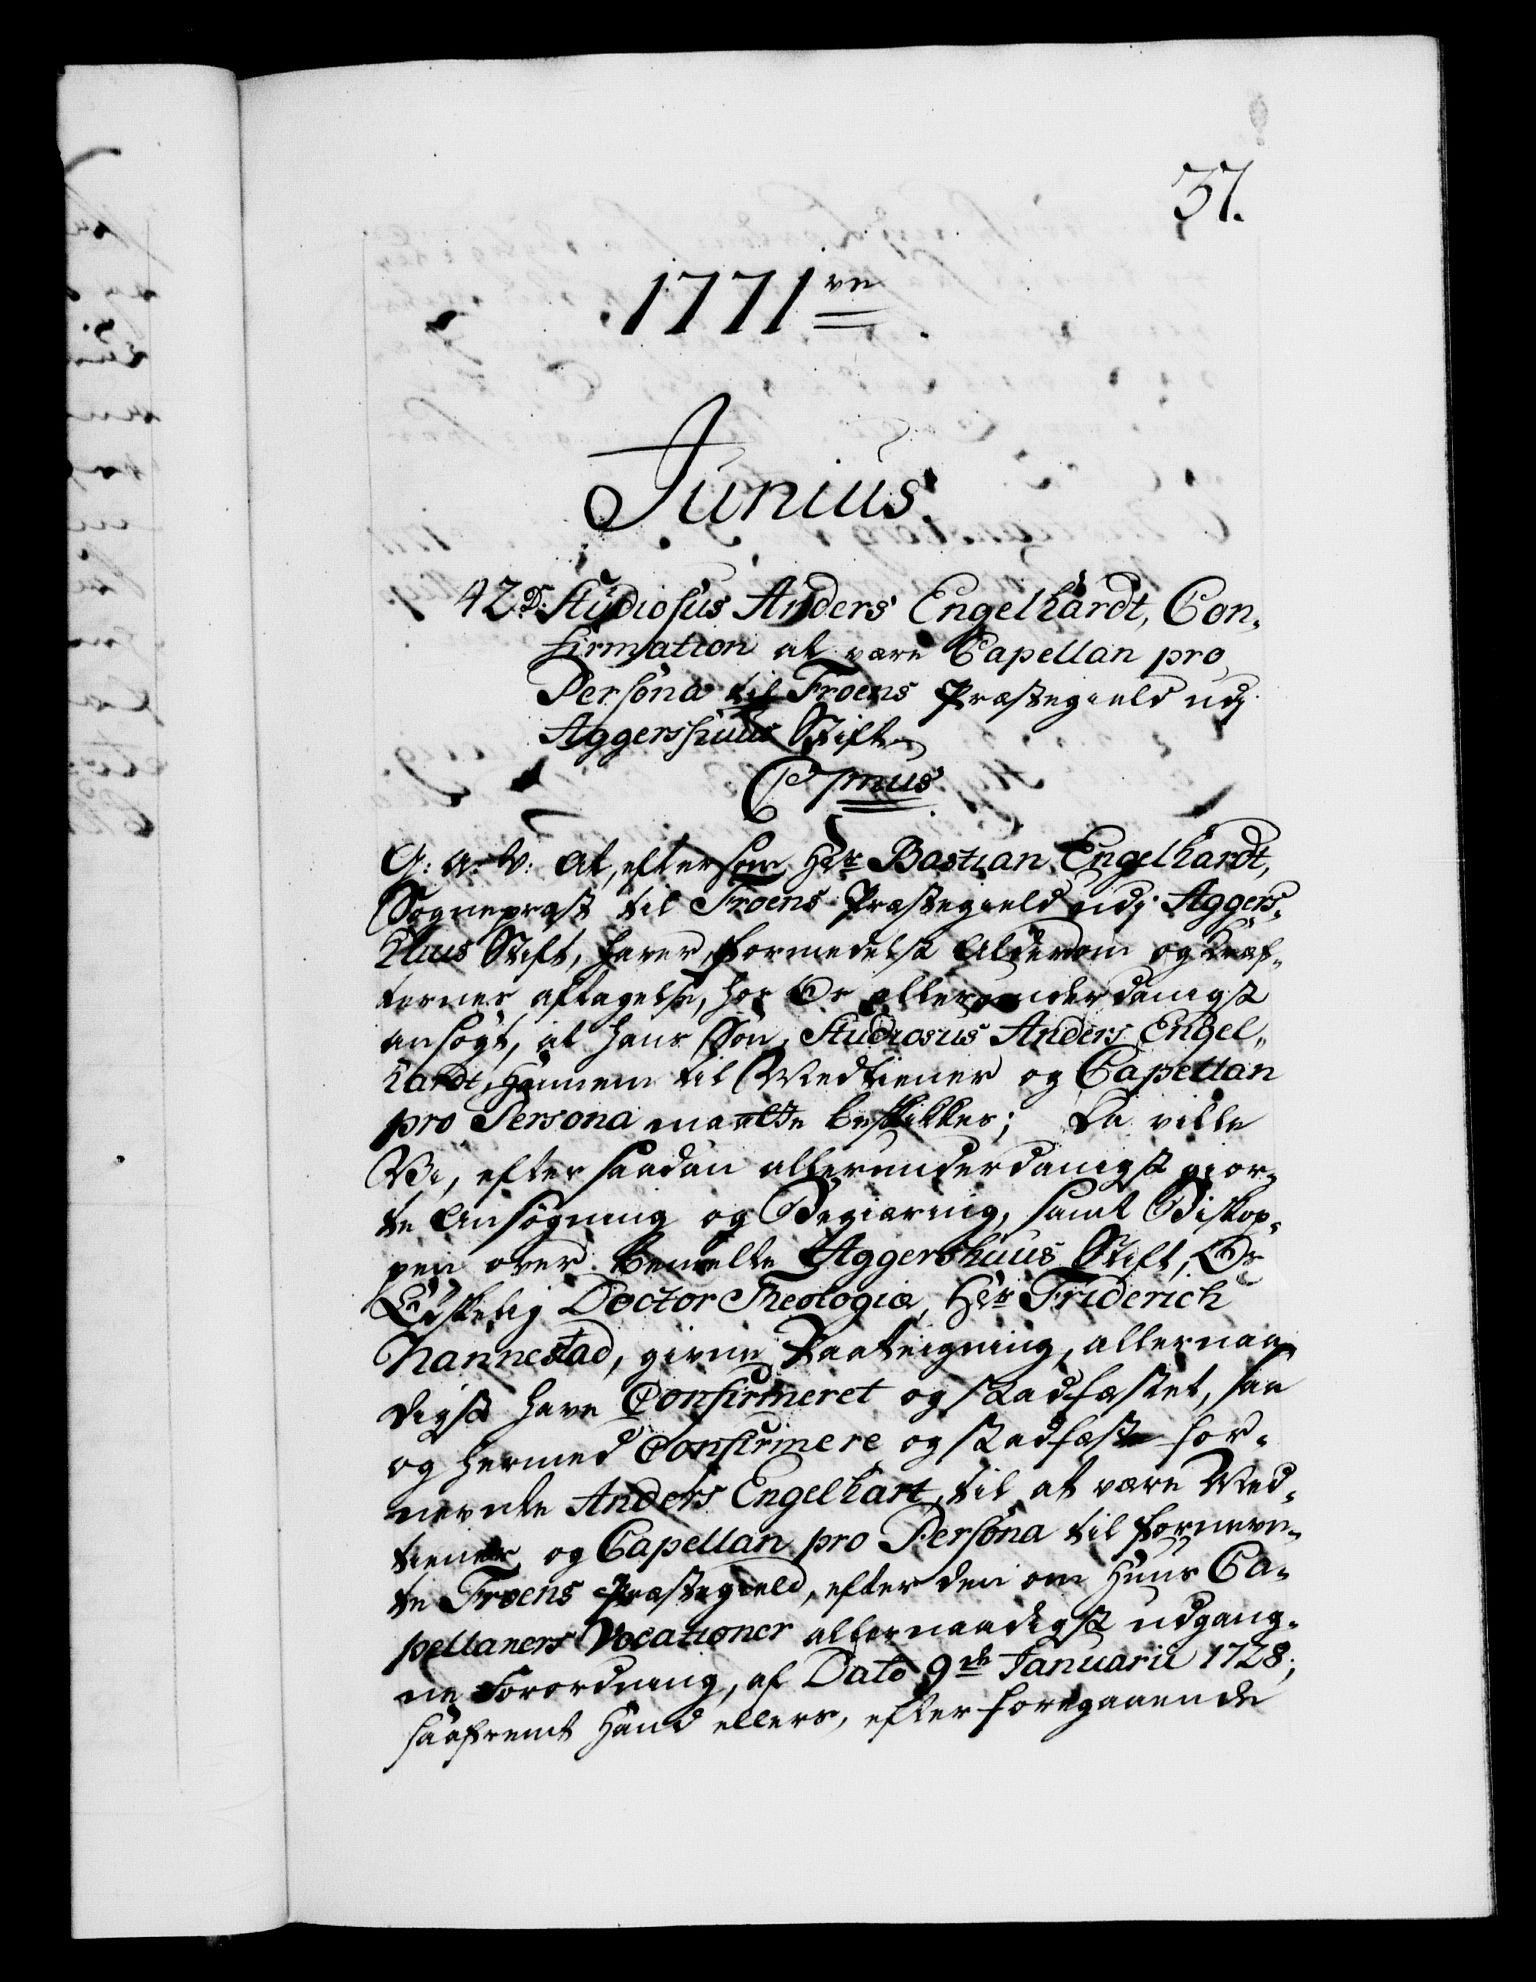 37.
1771ve
Junius
42.D. Studiosus Anders Engelhardt, Con-
firmation at være Capellan pro
Persona til Froens Præstegield udj
Aggershuus Stift.
C7mus
G: A: V: At, eftersom Hr Bastian Engelhardt,
Sognepræst til Froens Præstegield udj Aggers-
huus Stift, haver, formedelst Alderdom og Kræf-
ternes aftagelse, hos Os allerunderdanigst
ansøgt, at hans Søn, Studiosus Anders Engel-
hardt, Hannem til Medtiener og Capellan
pro Persona maatte beskikkes; Da ville
Vi, efter saadan allerunderdanigst gior-
te Ansøgning og Begiæring, samt Biskop-
pen over bemelte Aggershuus Stift, Os
Elskelig Doctor Theologiæ, Hr Friderich
Nannestad, givne Paateigning, allernaa-
digst have Confirmeret og stadfæstet, saa
og hermed Confirmere og stadfæste for-
nevnte Anders Engelhart, til at være Med-
tiener og Capellan pro Persona til fornevn-
te Froens Præstegield, efter den om Huus Ca-
pellaners Vocationer allernaadigst udgang-
ne Forordning, af Dato 9de Januarii 1728;
saafremt Hand ellers, efter foregaaende